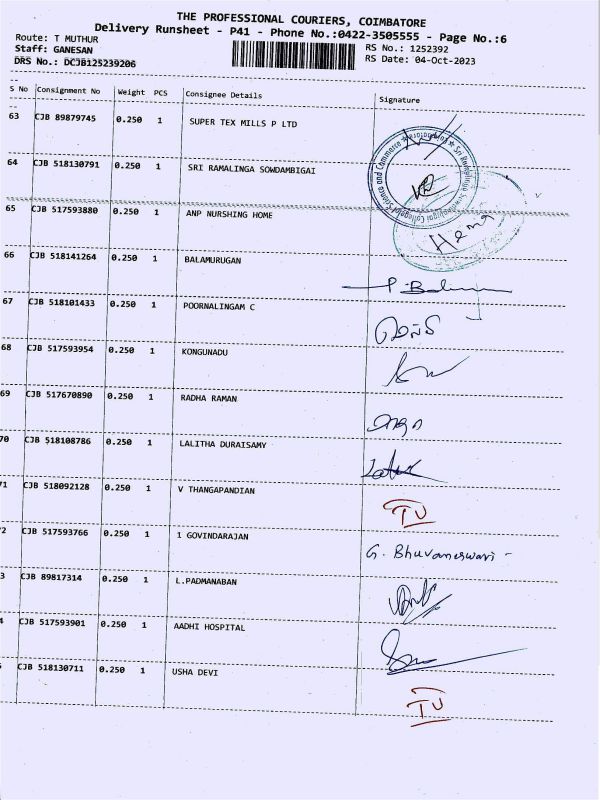 THE PROFESSIONAL COURIERS, COIMBATORE
Delivery Runsheet - P41 - Phone No.:0422-3505555 - Page No.:6
Route: T MUTHUR
RS No.: 1252392
Staff: GANESAN
RS Date: 04-Oct-2023
DRS No.: DCJB125239206
S No Consignment No Weight PCS Consignee Details Signature
63 CJB 89879745 0.250 1 SUPER TEX MILLS P LTD
64 CJB 518130791 0.250 1 SRI RAMALINGA SOWDAMBIGAI
65 CJB 517593880 0.250 1 ANP NURSHING HOME Hema
66 CJB 518141264 0.250 1 BALAMURUGAN
67 CJB 518101433 0.250 1 POORNALINGAM C
68 CJB 517593954 0.250 1 KONGUNADU
69 CJB 517670890 0.250 1 RADHA RAMAN
70 CJB 518108786 0.250 1 LALITHA DURAISAMY
71 CJB 518092128 0.250 1 V THANGAPANDIAN TU
2 CJB 517593766 0.250 1 1 GOVINDARAJAN G. Bhuvaneswari -
3 CJB 89817314 0.250 1 L.PADMANABAN
4 CJB 517593901 0.250 1 AADHI HOSPITAL
CJB 518130711 0.250 1 USHA DEVI TU